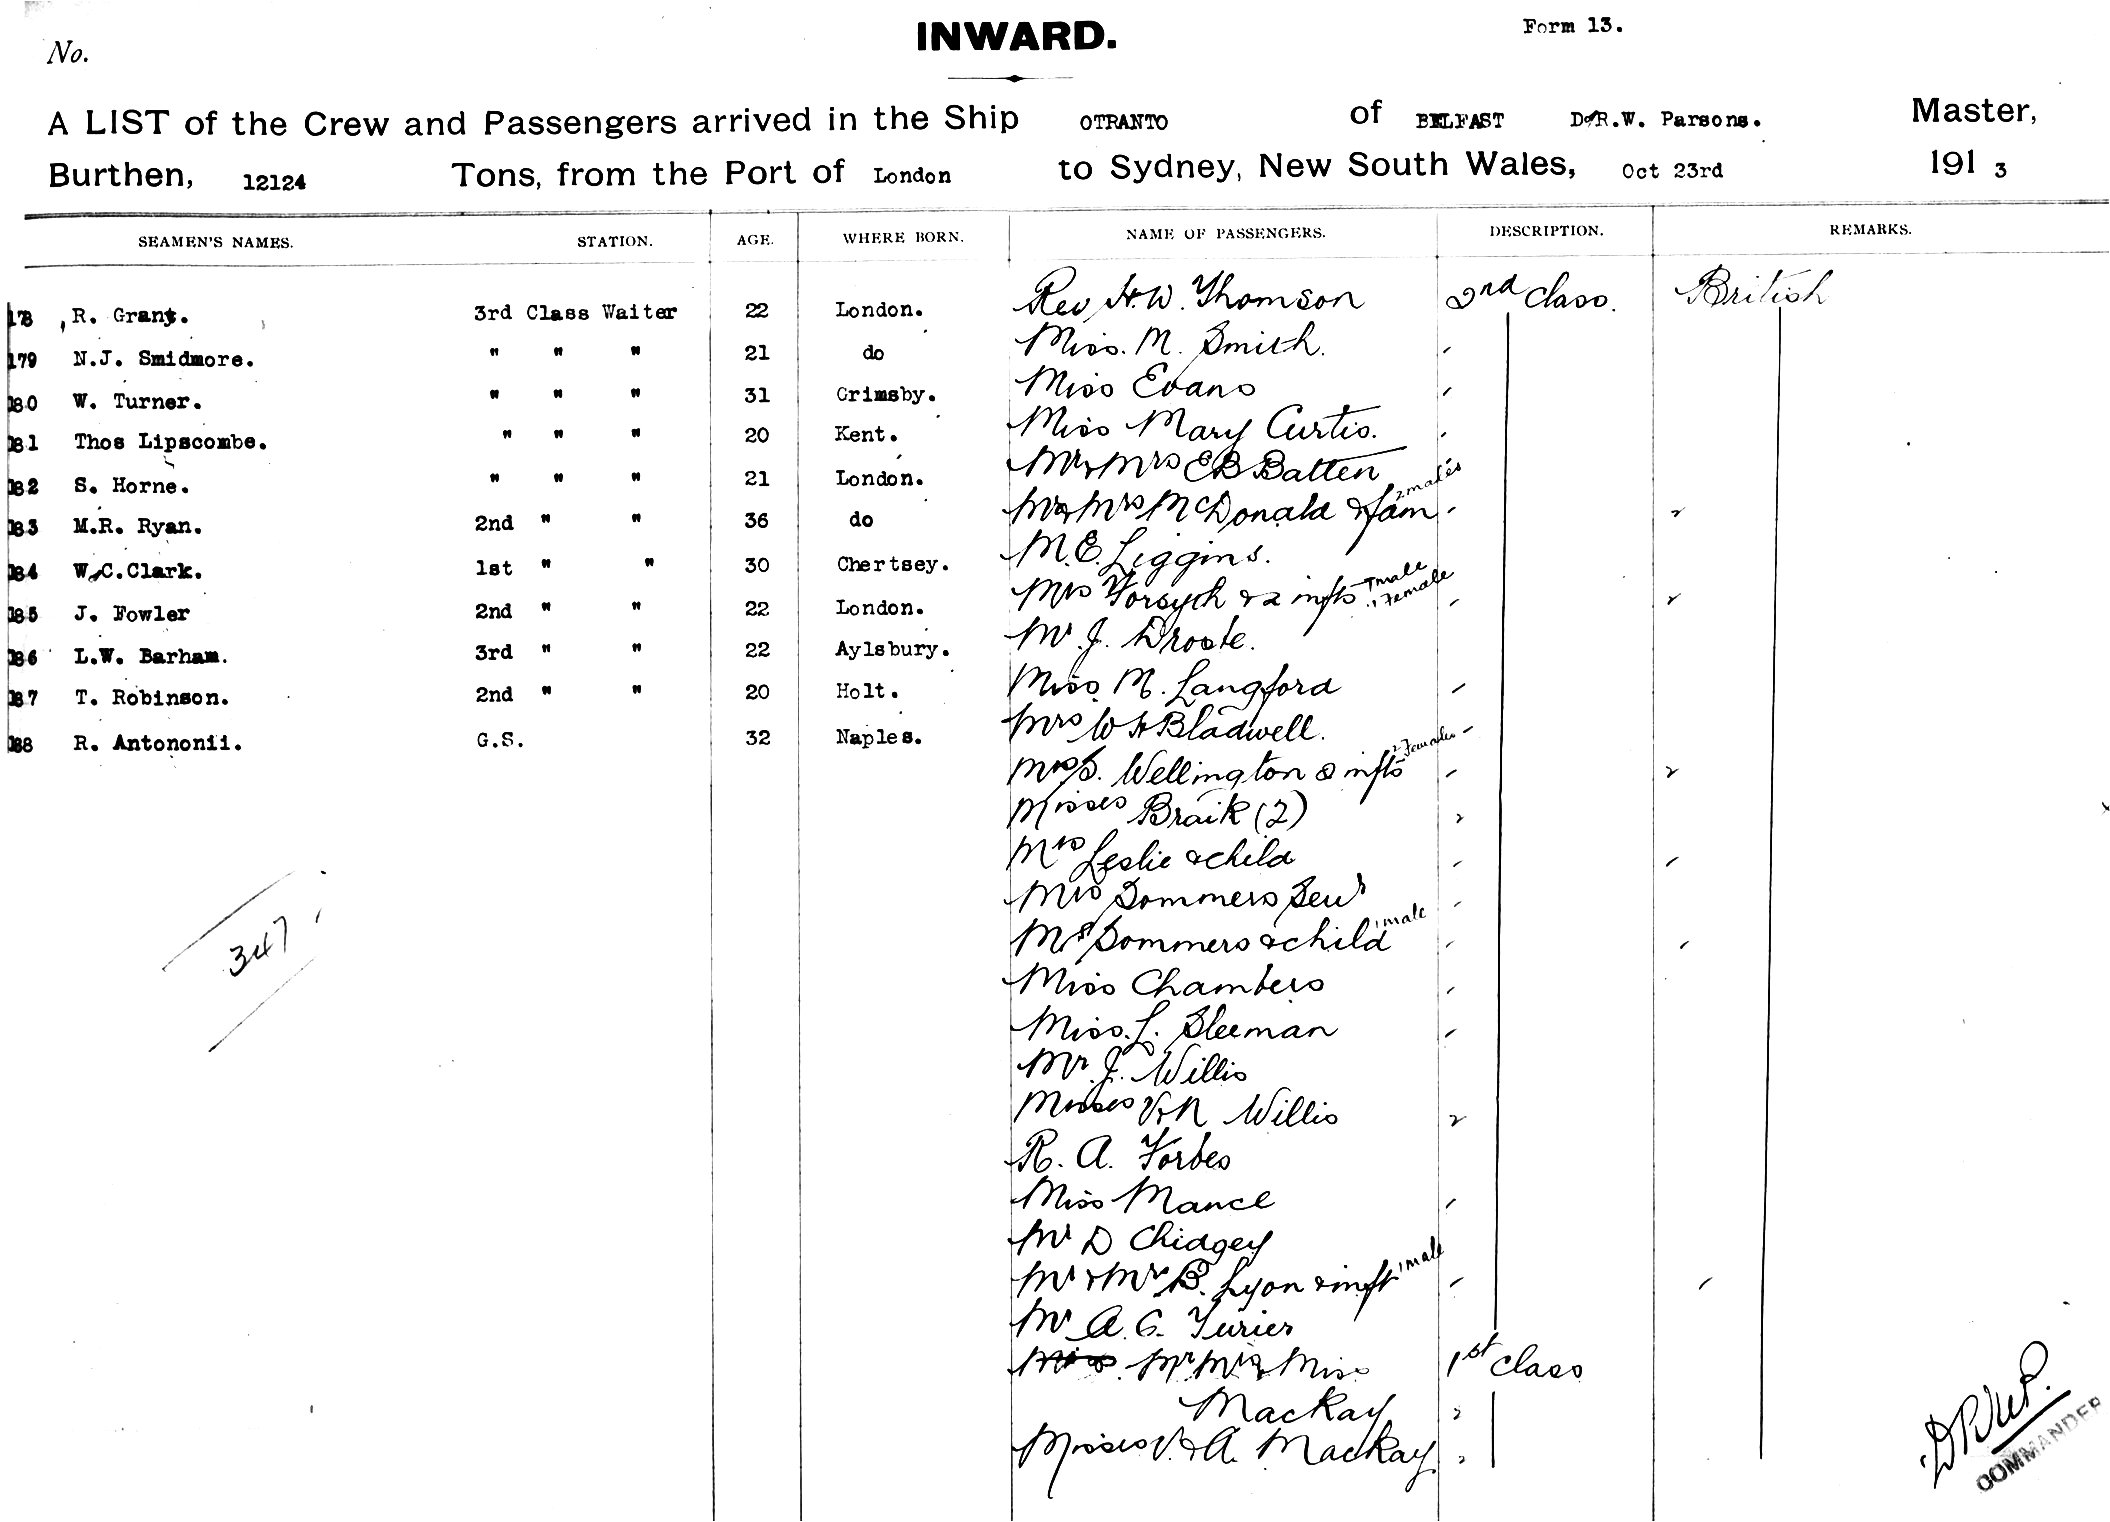 INWARD.
Form 13.
No.
A LIST of the Crew and Passengers arrived in the Ship OTRANTO of BELFAST D.R.W. Parsons. Master,
Burthen, 12124 Tons, from the Port of London to Sydney, New South Wales, Oct 23rd 1913
SEAMEN'S NAMES. STATION. AGE. WHERE BORN. NAME OF PASSENGERS. DESCRIPTION. REMARKS.
178 R. Grant. 3rd Class Waiter 22 London.
179 N.J. Smidmore. " " " 21 do
180 W. Turner. " " " 31 Grimsby.
181 Thos Lipscombe. " " " 20 Kent.
182 S. Horne. " " " 21 London.
183 M.R. Ryan. 2nd " " 36 do
184 W.C.Clark. 1st " " 30 Chertsey.
185 J. Fowler 2nd " " 22 London.
186 L.W. Barham. 3rd " " 22 Aylsbury.
187 T. Robinson. 2nd " " 20 Holt.
188 R. Antononii. G.S. 32 Naples.
347
Rev H.W. Thomson 2nd Class. British
Miss. M. Smith.
Miss Evans
Miss Mary Curtis.
Mr & Mrs E B Batten
Mr & Mrs McDonald & fam 2 males 2
M.E. Liggins.
Mrs Forsyth & 2 infts 1 male 1 Female 2
Mr J. Droste.
Miss M. Langford
Mrs W H Bladwell.
Mrs S. Wellington & infts 2 Females 2
Misses Braik (2) 2
Mrs Leslie & child
Mrs Sommers Senr
Mr Sommers & child 1 male
Miss Chambers
Miss. L. Sleeman
Mr J. Willis
Misses V & N Willis 2
R. A. Forbes
Miss Mance
Mr D Chidgey
Mr & Mrs B. Lyon & inft 1 male
Mr A. G.
Miss Mr Mrs & Miss 1st Class
Mackay 2
Misses V. & A. Mackay 2
COMMANDER